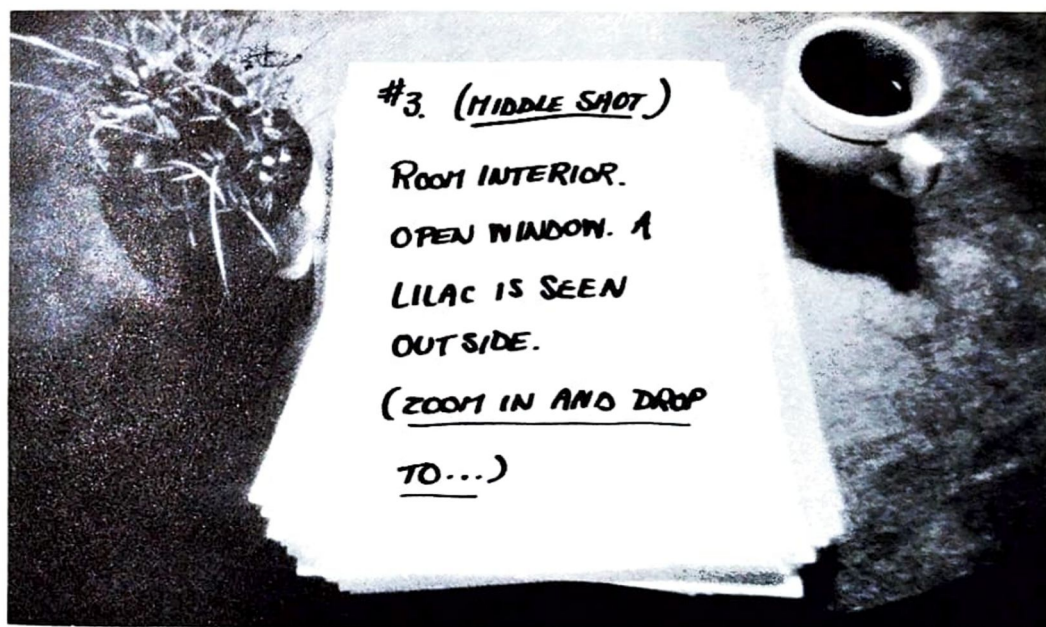 #3. (MIDDLE SHOT)
ROOM INTERIOR.
OPEN WINDOW. A
LILAC IS SEEN
OUTSIDE.
(ZOOM IN AND DROP
TO...)